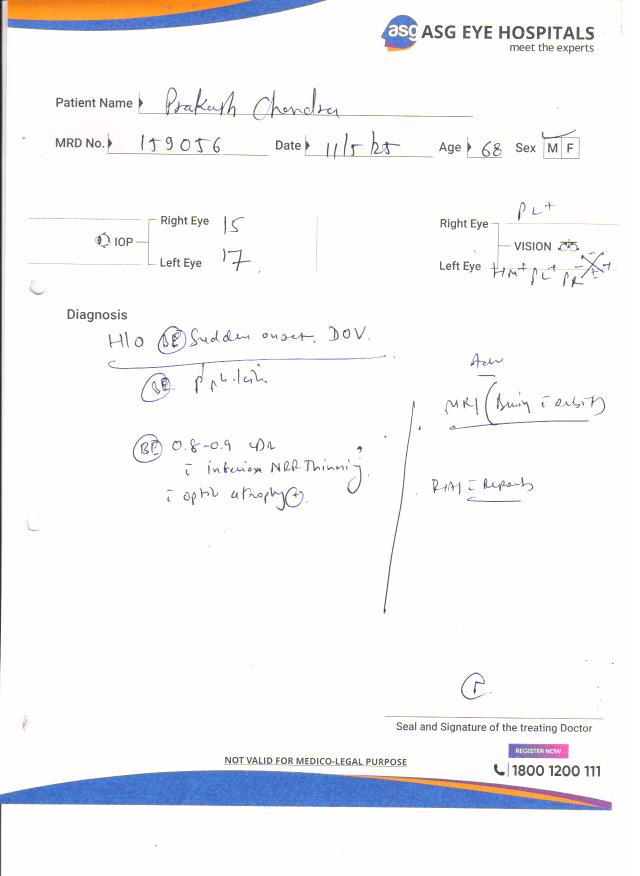 asg ASG EYE HOSPITALS
meet the experts
Patient Name Prakash Chandra
MRD No. 159056 Date 11/5/25 Age 68 Sex M F
IOP
Right Eye 15
Left Eye 17
Right Eye PL+
VISION
Left Eye HM+ PL+ PR
Diagnosis
H/o BE Sudden onset DOV.
BE
BE 0.8-0.9 CDR
c̄ inferior NRR Thinning
c̄ optic atrophy +
Adv
MRI (Brain c̄ orbit)
R/A/ c̄ Reports
Seal and Signature of the treating Doctor
REGISTER NOW
NOT VALID FOR MEDICO-LEGAL PURPOSE
1800 1200 111